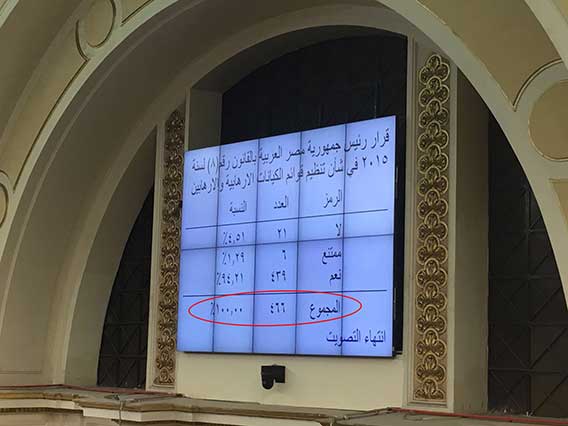 قرار رئيس جمهورية مصر العربية بالقانون رقم (٨) لسنة
٢٠١٥ في شأن تنظيم قوائم الكيانات الارهابية والارهابين
الرمز العدد النسبة
لا ٢١ ٤,٥١٪
ممتنع ٦ ١,٢٩٪
نعم ٤٣٩ ٩٤,٢١٪
المجموع ٤٦٦ ١٠٠,٠٠٪
انتهاء التصويت